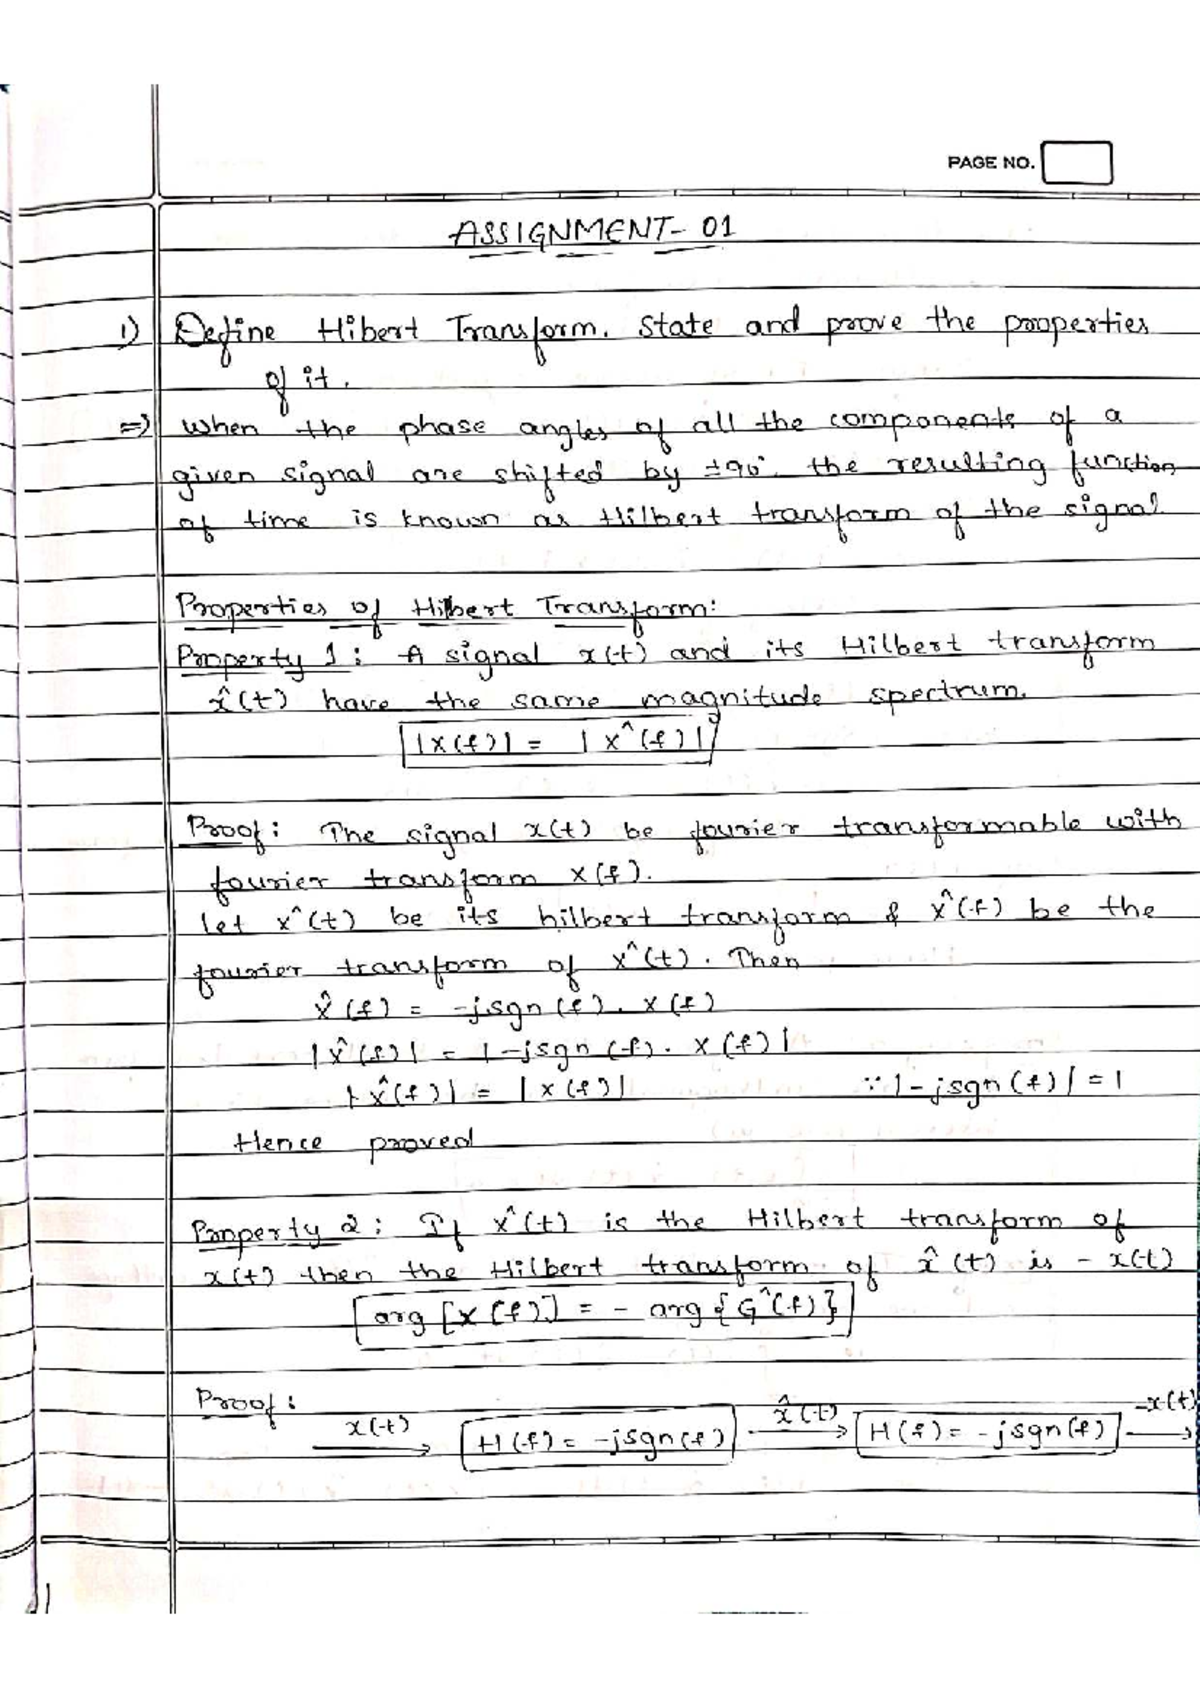 PAGE NO.
ASSIGNMENT- 01
1) Define Hibert Transform. State and prove the properties
of it.
=) When the phase angles of all the components of a
given signal are shifted by ±90°. the resulting function
of time is known as Hilbert transform of the signal
Properties of Hilbert Transform:
Property 1: A signal x(t) and its Hilbert transform
x̂(t) have the same magnitude spectrum.
|X(f)| = |X^(f)|
Proof: The signal x(t) be fourier transformable with
fourier transform X(f).
let x^(t) be its hilbert transform & X^(f) be the
fourier transform of x^(t). Then
X̂(f) = -jsgn(f). X(f)
|X̂(f)| = |-jsgn(f). X(f)|
|X̂(f)| = |X(f)| ∵ |-jsgn(f)| = 1
Hence proved
Property 2: If x^(t) is the Hilbert transform of
x(t) then the Hilbert transform of x̂(t) is - x(t)
arg [X(f)] = - arg {G^(f)}
Proof:
x(t) H(f) = -jsgn(f) x̂(t) H(f) = -jsgn(f) -x(t)